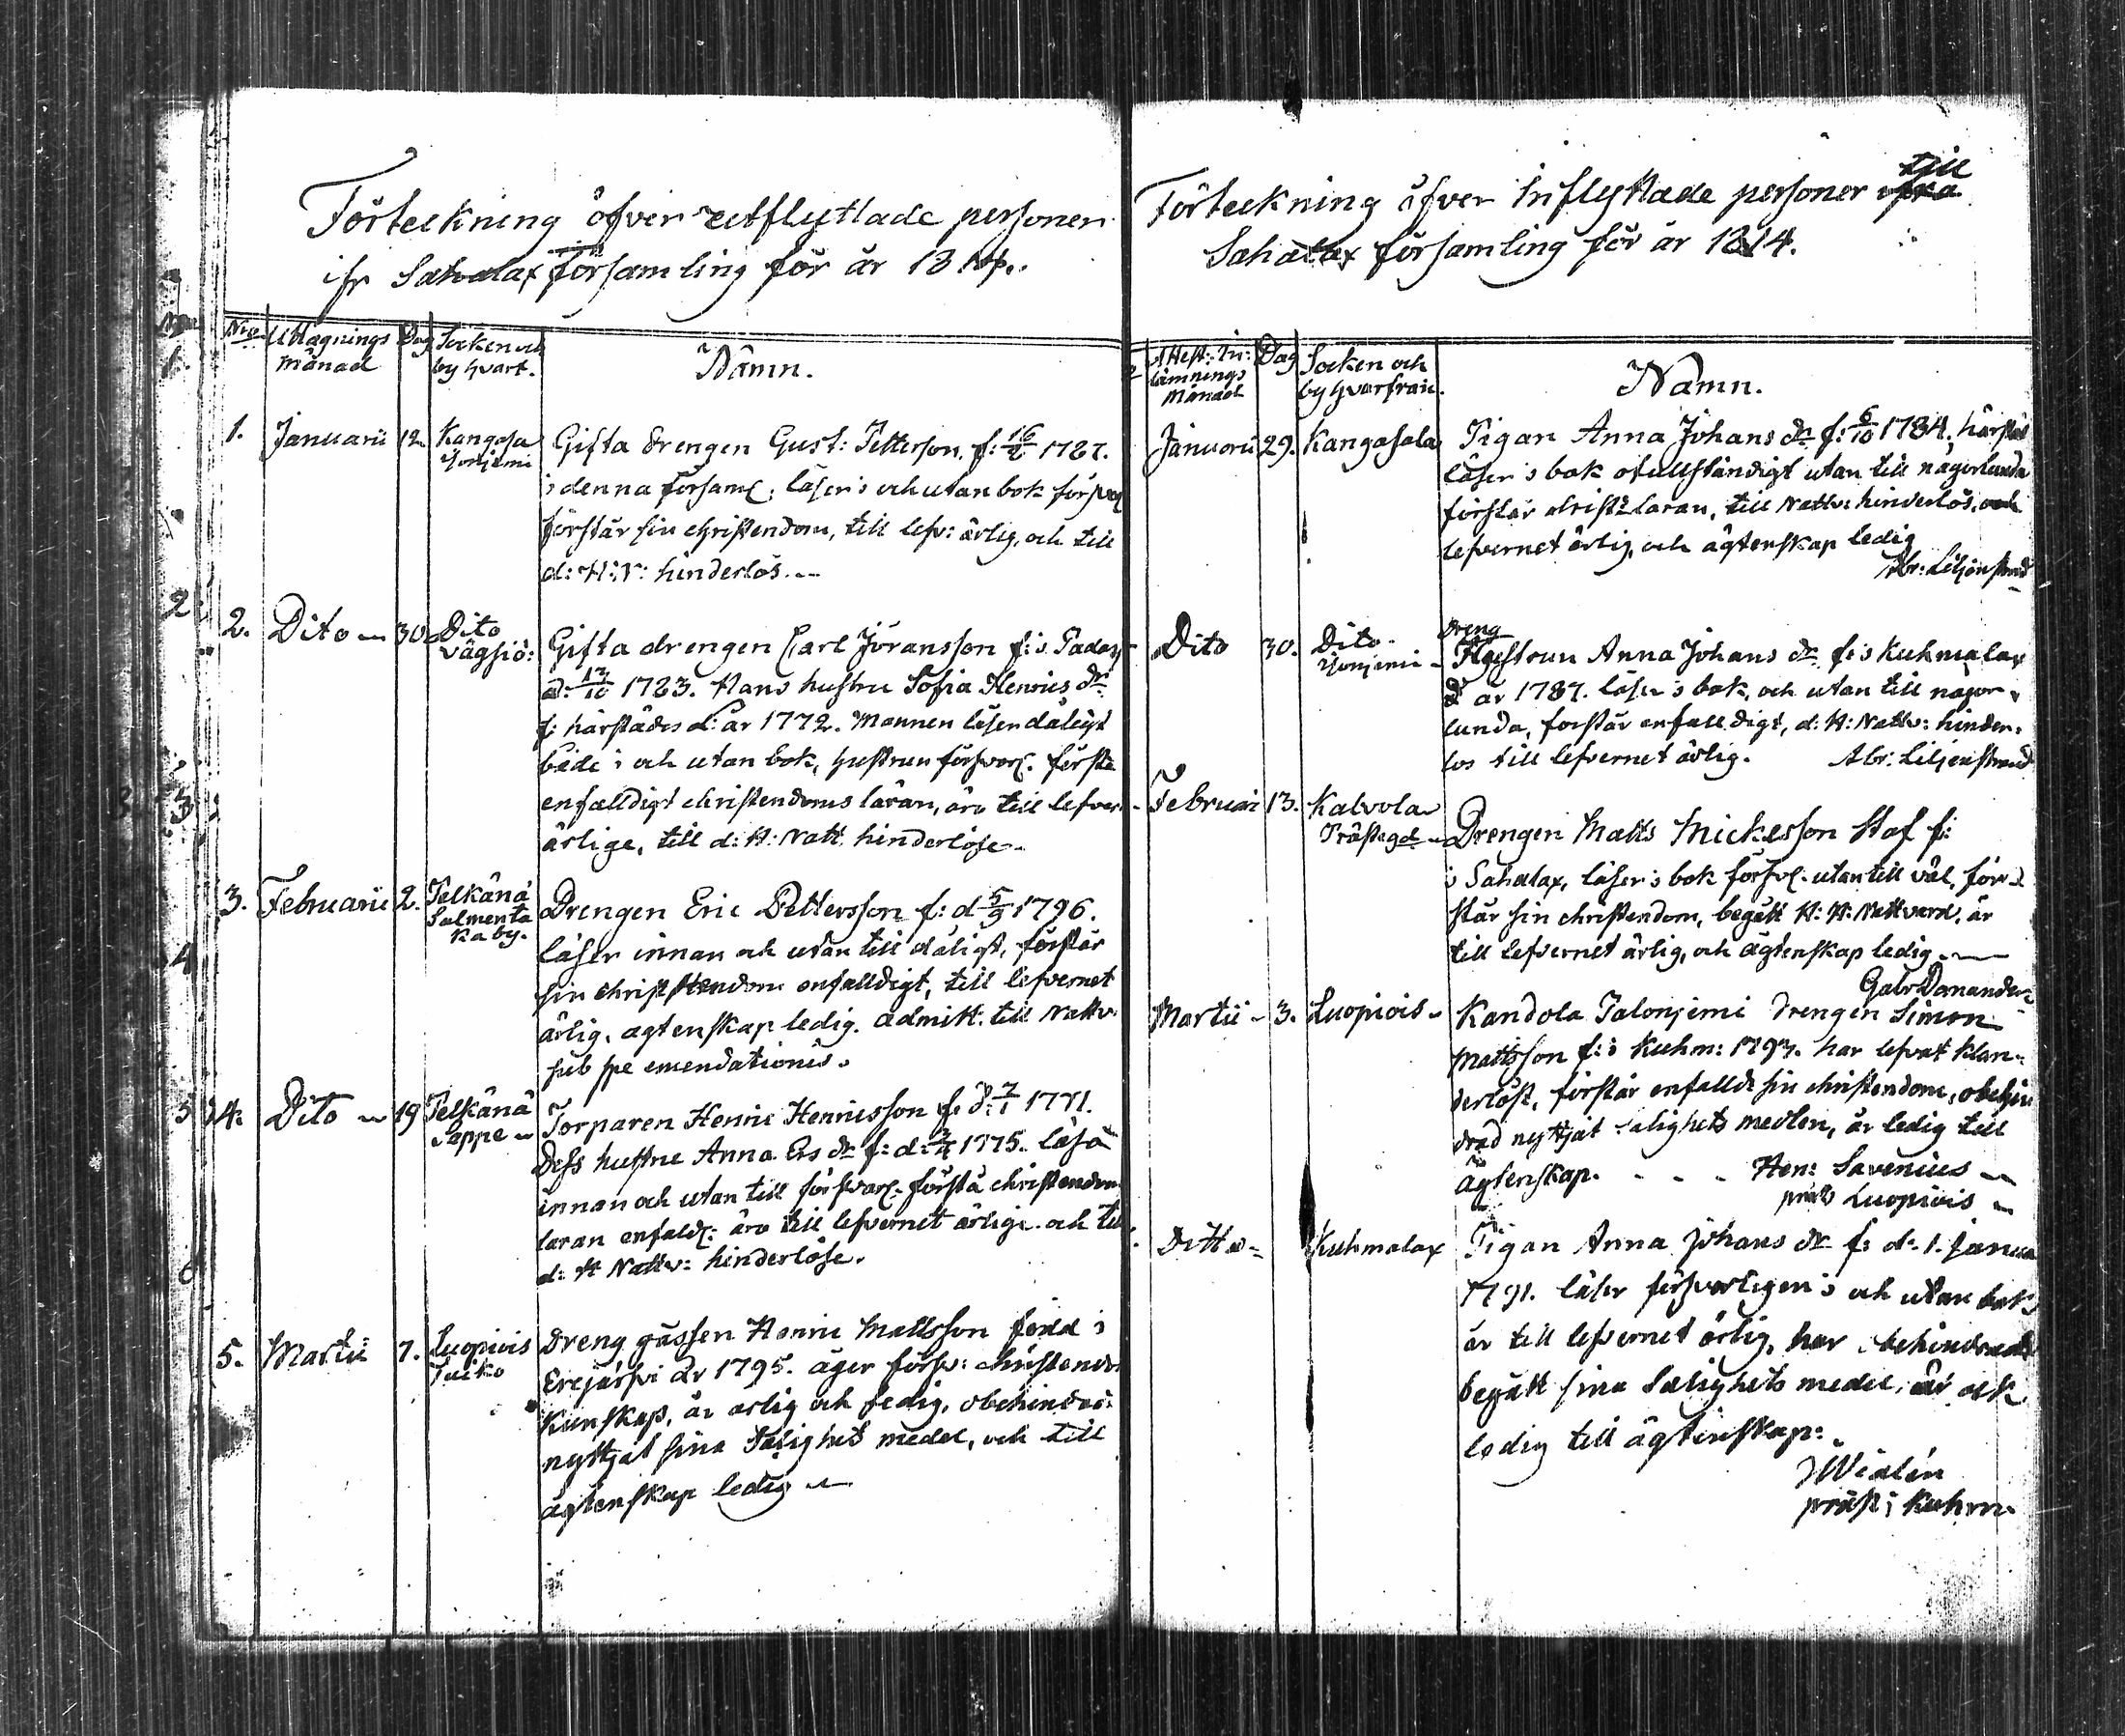 Förteckning öfver utflyttade personer
ifr Sahalax Församling för år 1814.
Nro
Uttagnings
månad
Dag
Socken och
by hvart.
Namn.
1. Januarii 12. Kangasa
Yonjemi
Gifta drengen Gust: Petterson, f: 16/2 1787.
i denna församl: läser i och utan bok försvarl
förstår sin christendom, till lefv: ärlig, och till
d: H: N: hinderlös.
2. Dito 30. Dito
Vägsiö:
Gifta drengen Carl Jöransson f: i Padas
d: 13/10 1783. Hans hustru Sofia Henrics dr
f: härstädes d: år 1772. Mannen läser dåligt
både i och utan bok, hustrun försvarl. förstå
enfalldigt christendoms läran, äro till lefver
ärlige, till d: H: Natt. hinderlöse.
3. Februarii 2. Pelkänä
Salmenta
ka by.
Drengen Eric Pettersson f: d 5/9 1796.
läser innan och utan till dåligt, förstår
sin christendom enfalldigt, till lefvernet
ärlig, agtenskap ledig. admitt. till Nattv.
sub spe emendationis.
4. Dito 19 Pelkänä
Pappe
Torparen Henric Henricsson f: d: 7/1 1771.
Dess hustru Anna Ers dr f: d: 1775. läsa
innan och utan till försvarl. förstå christendom
laran enfald: äro till lefvernet ärlige och till
d: H Nattv: hinderlöse.
5. Martii 7. Luopiois
Puiko
Dreng gåssen Henric Mattsson född i
Erejärfvi år 1795. äger försv: christendo
kunskap, är ärlig och ledig, obehindra:
nyttjat sina salighets medel, och till
ägtenskap ledig
Förteckning öfver inflyttade personer till
Sahalax församling för år 1814.
Attest: in:
lämnings
Månad
Dag
Socken och
by hvarfrån.
Namn.
Januarii 29. Kangasala
Pigan Anna Johans dr f: 6/10 1784. härstäd
läser i bok ofullständigt utan till någorlunda
förstår christ: laran, till Nattv: hinderlös, och
lefvernet ärlig, och ägtenskap ledig
Abr: Liljenstrand
Dito 30. Dito
Yonjemi
Dreng
Hustrun Anna Johans dr f: i Kuhmalax
d år 1787. läser i bok, och utan till någor
lunda, forstår enfalldigt, d: H: Nattv: hinder-
los till lefvernet ärlig. Abr: Liljenstrand
Februari 13. Kalvola
Prästegd
Drengen Matts Mickelsson Hof f:
i Sahalax, läser i bok försvl. utan till väl, för
står sin christendom, begått H: H: Nattvard, är
till lefvernet ärlig, och ägtenskap ledig.
Gabr Domander
Martii 3. Luopiois
Kandola Palonjemi drengen Simon
Mattsson f: i Kuhm: 1793. har lefvat klan-
derlöst, förstår enfalldt sin christendom, obehin
drad nyttjat salighets medlen, är ledig till
ägtenskap. Hen: Savenius
präst Luopiois
Ditto Kuhmalax
Pigan Anna Johans dr f: d. 1. Janua
1791. läser försvarligen i och utan bok
är till lefvernet ärlig, har obehindrad
begått sina salighets medel, är ock
ledig till ägtenskap.
J Widlén
präst i Kuhm.